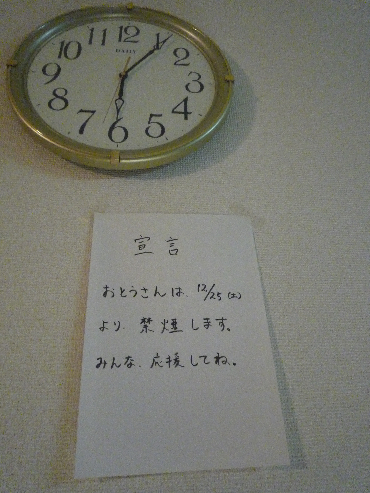 11 12 1
10 2
9 3
8 4
7 6 5
宣言
おとうさんは、12/25(土)
より、禁煙します。
みんな、応援してね。